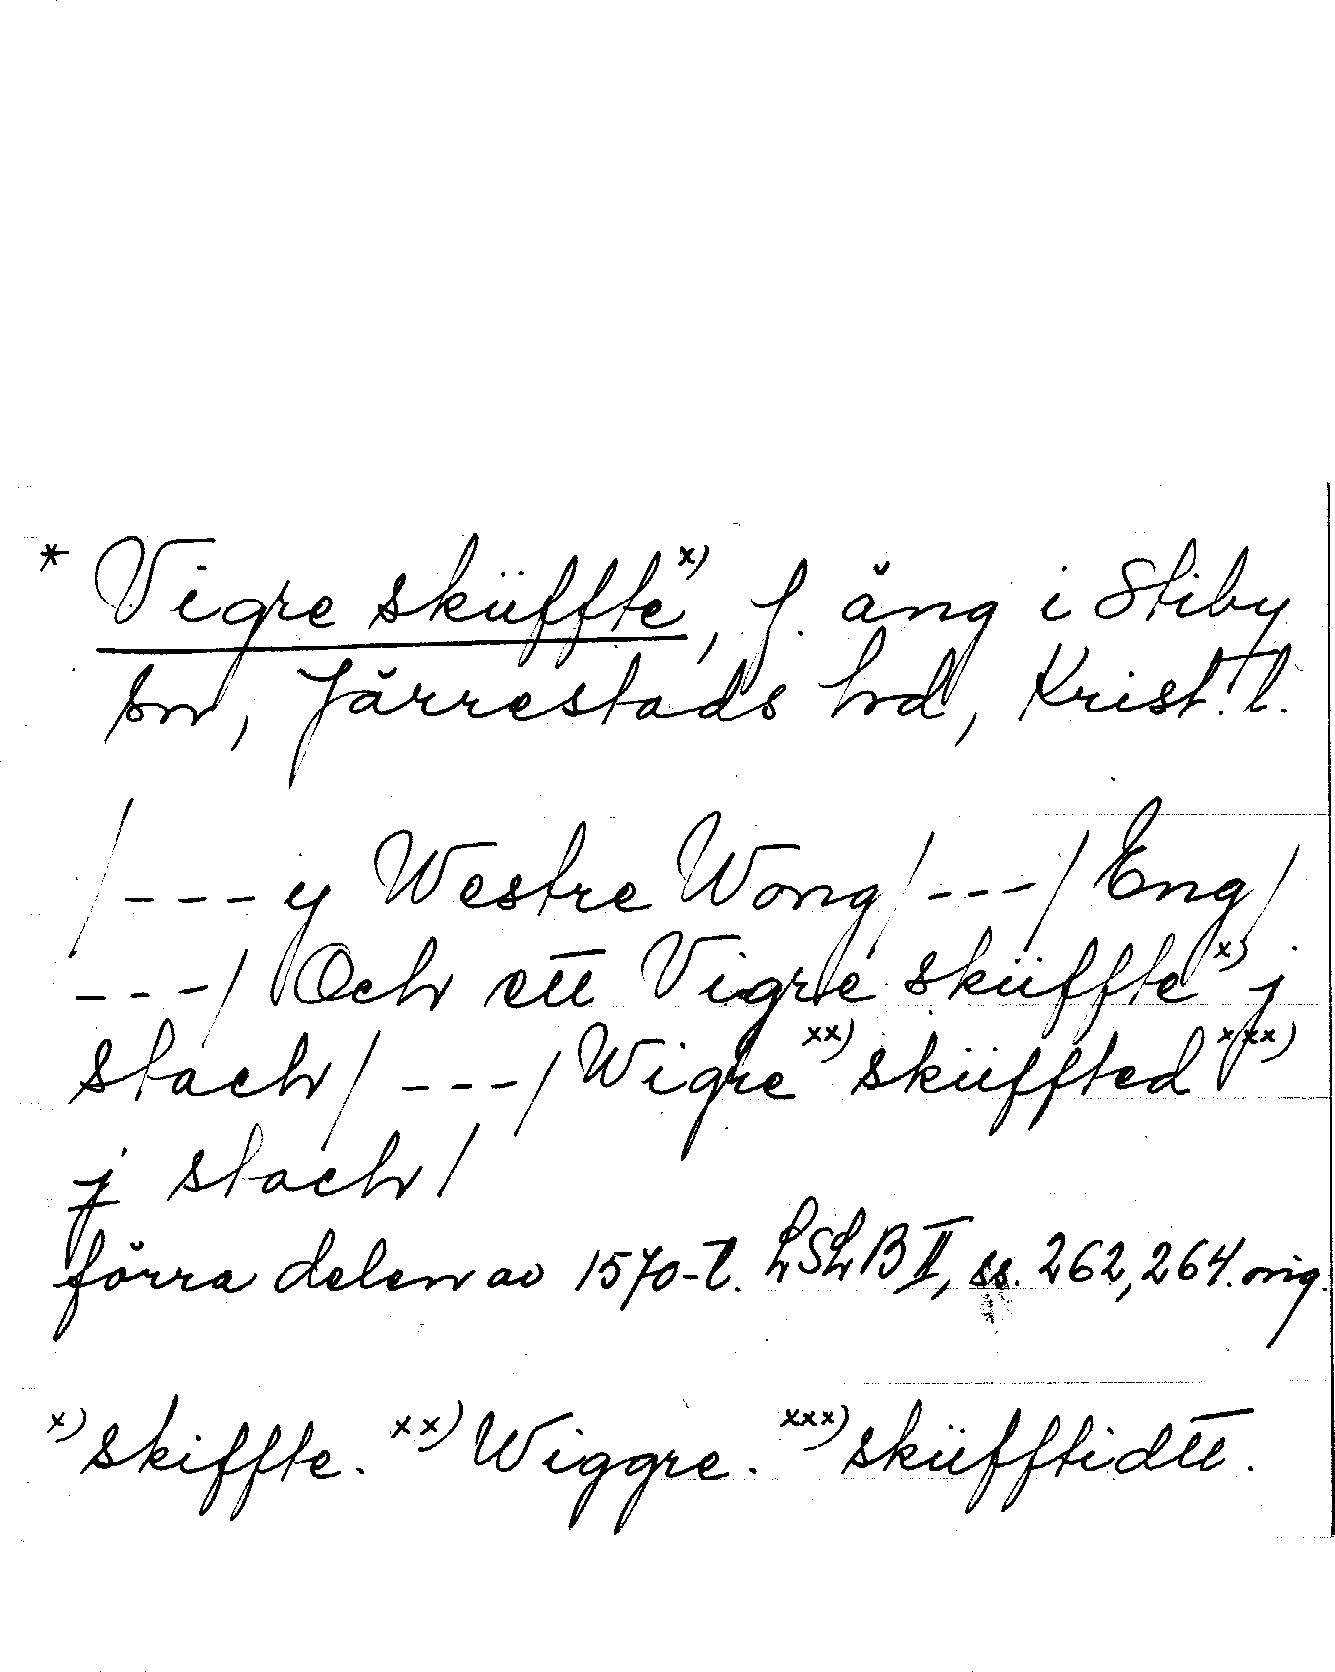 * Vigre sküffte x), f. äng i Stiby
sn, Järrestads hd, Krist. l.
/---y Westre Wong/---/Eng/
---/ Och ett Vigre sküffte x) j
stach/ ---/Wigre xx) sküffted xxx)
j stach/
förra delen av 1570-t. LSLB II, ss. 262, 264. orig.
x) skiffte. xx) Wiggre. xxx) sküfftidtt.